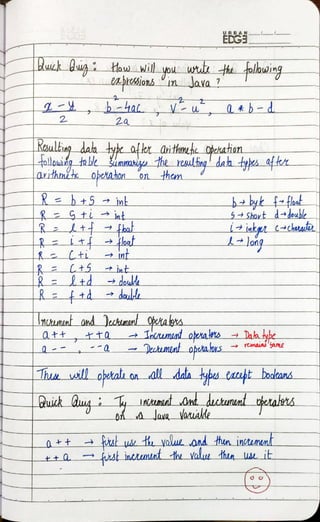 URBAN
EDGE
Quick Quiz : How will you write the following
expressions in Java ?
x - y , b² - 4ac , v² - u² , a * b - d
2 2a
Resulting data type after arithmetic operation
following table summarizes the resulting data types after
arithmetic operation on them
R = b + s → int b → byte f → float
R = s + i → int s → short d → double
R = l + f → float i → integer c → character
R = i + f → float l → long
R = c + i → int
R = c + s → int
R = l + d → double
R = f + d → double
Increment and Decrement Operators
a++ , ++a → Increment operators → Data type
a-- , --a → Decrement operators → remains same
These will operate on all data types except booleans
Quick Quiz : Try increment and decrement operators
on a Java Variable
a++ → first use the value and then increment
++a → first increment the value then use it